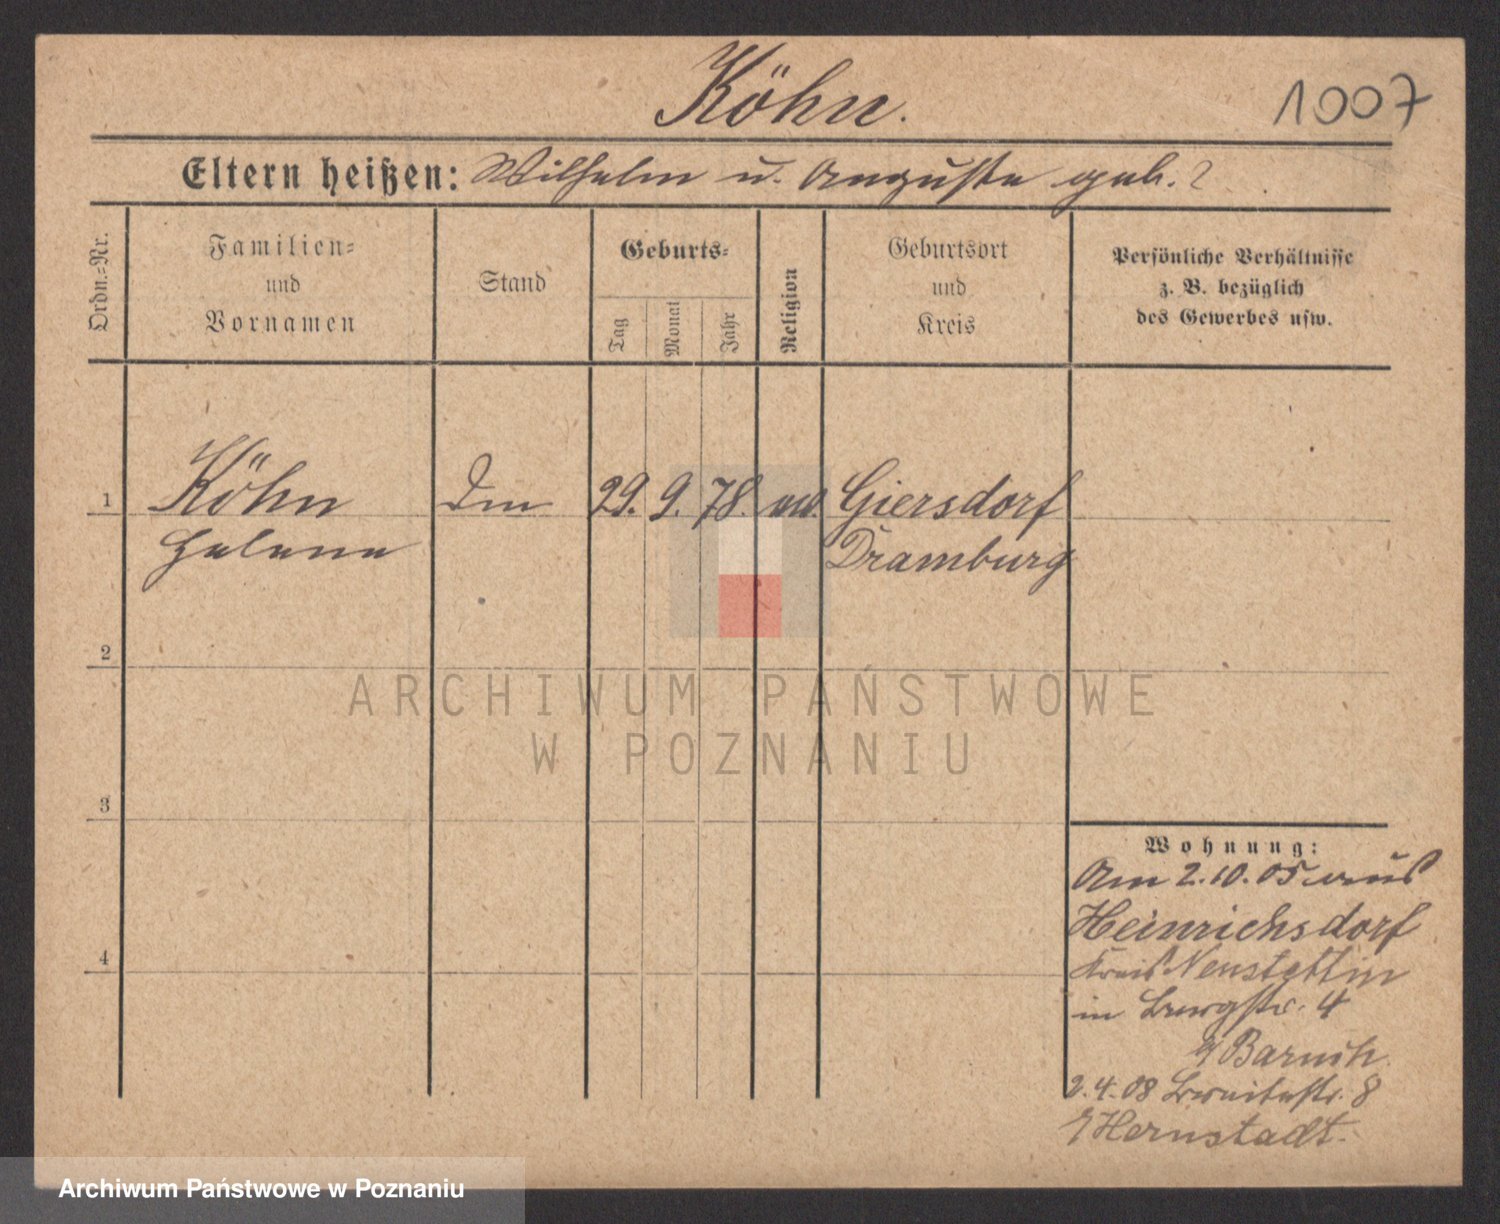 Köhn.
1007
Eltern heißen: Wilhelm u. Auguste geb. ?
Ordn.=Nr.
Familien=
und
Vornamen
Stand
Geburts=
Tag
Monat
Jahr
Religion
Geburtsort
und
Kreis
Persönliche Verhältnisse
z. B. bezüglich
des Gewerbes usw.
1
Köhn
29. 9. 78.
Giersdorf
Helene
Dramburg
2
ARCHIWUM PAŃSTWOWE
W POZNANIU
3
Wohnung:
Am 2.10.05 aus
Heinrichsdorf
4
Kreis Neustettin
in Burgstr. 4
Baruch.
2.4.08 Breitestr. 8
Hernstadt.
Archiwum Państwowe w Poznaniu